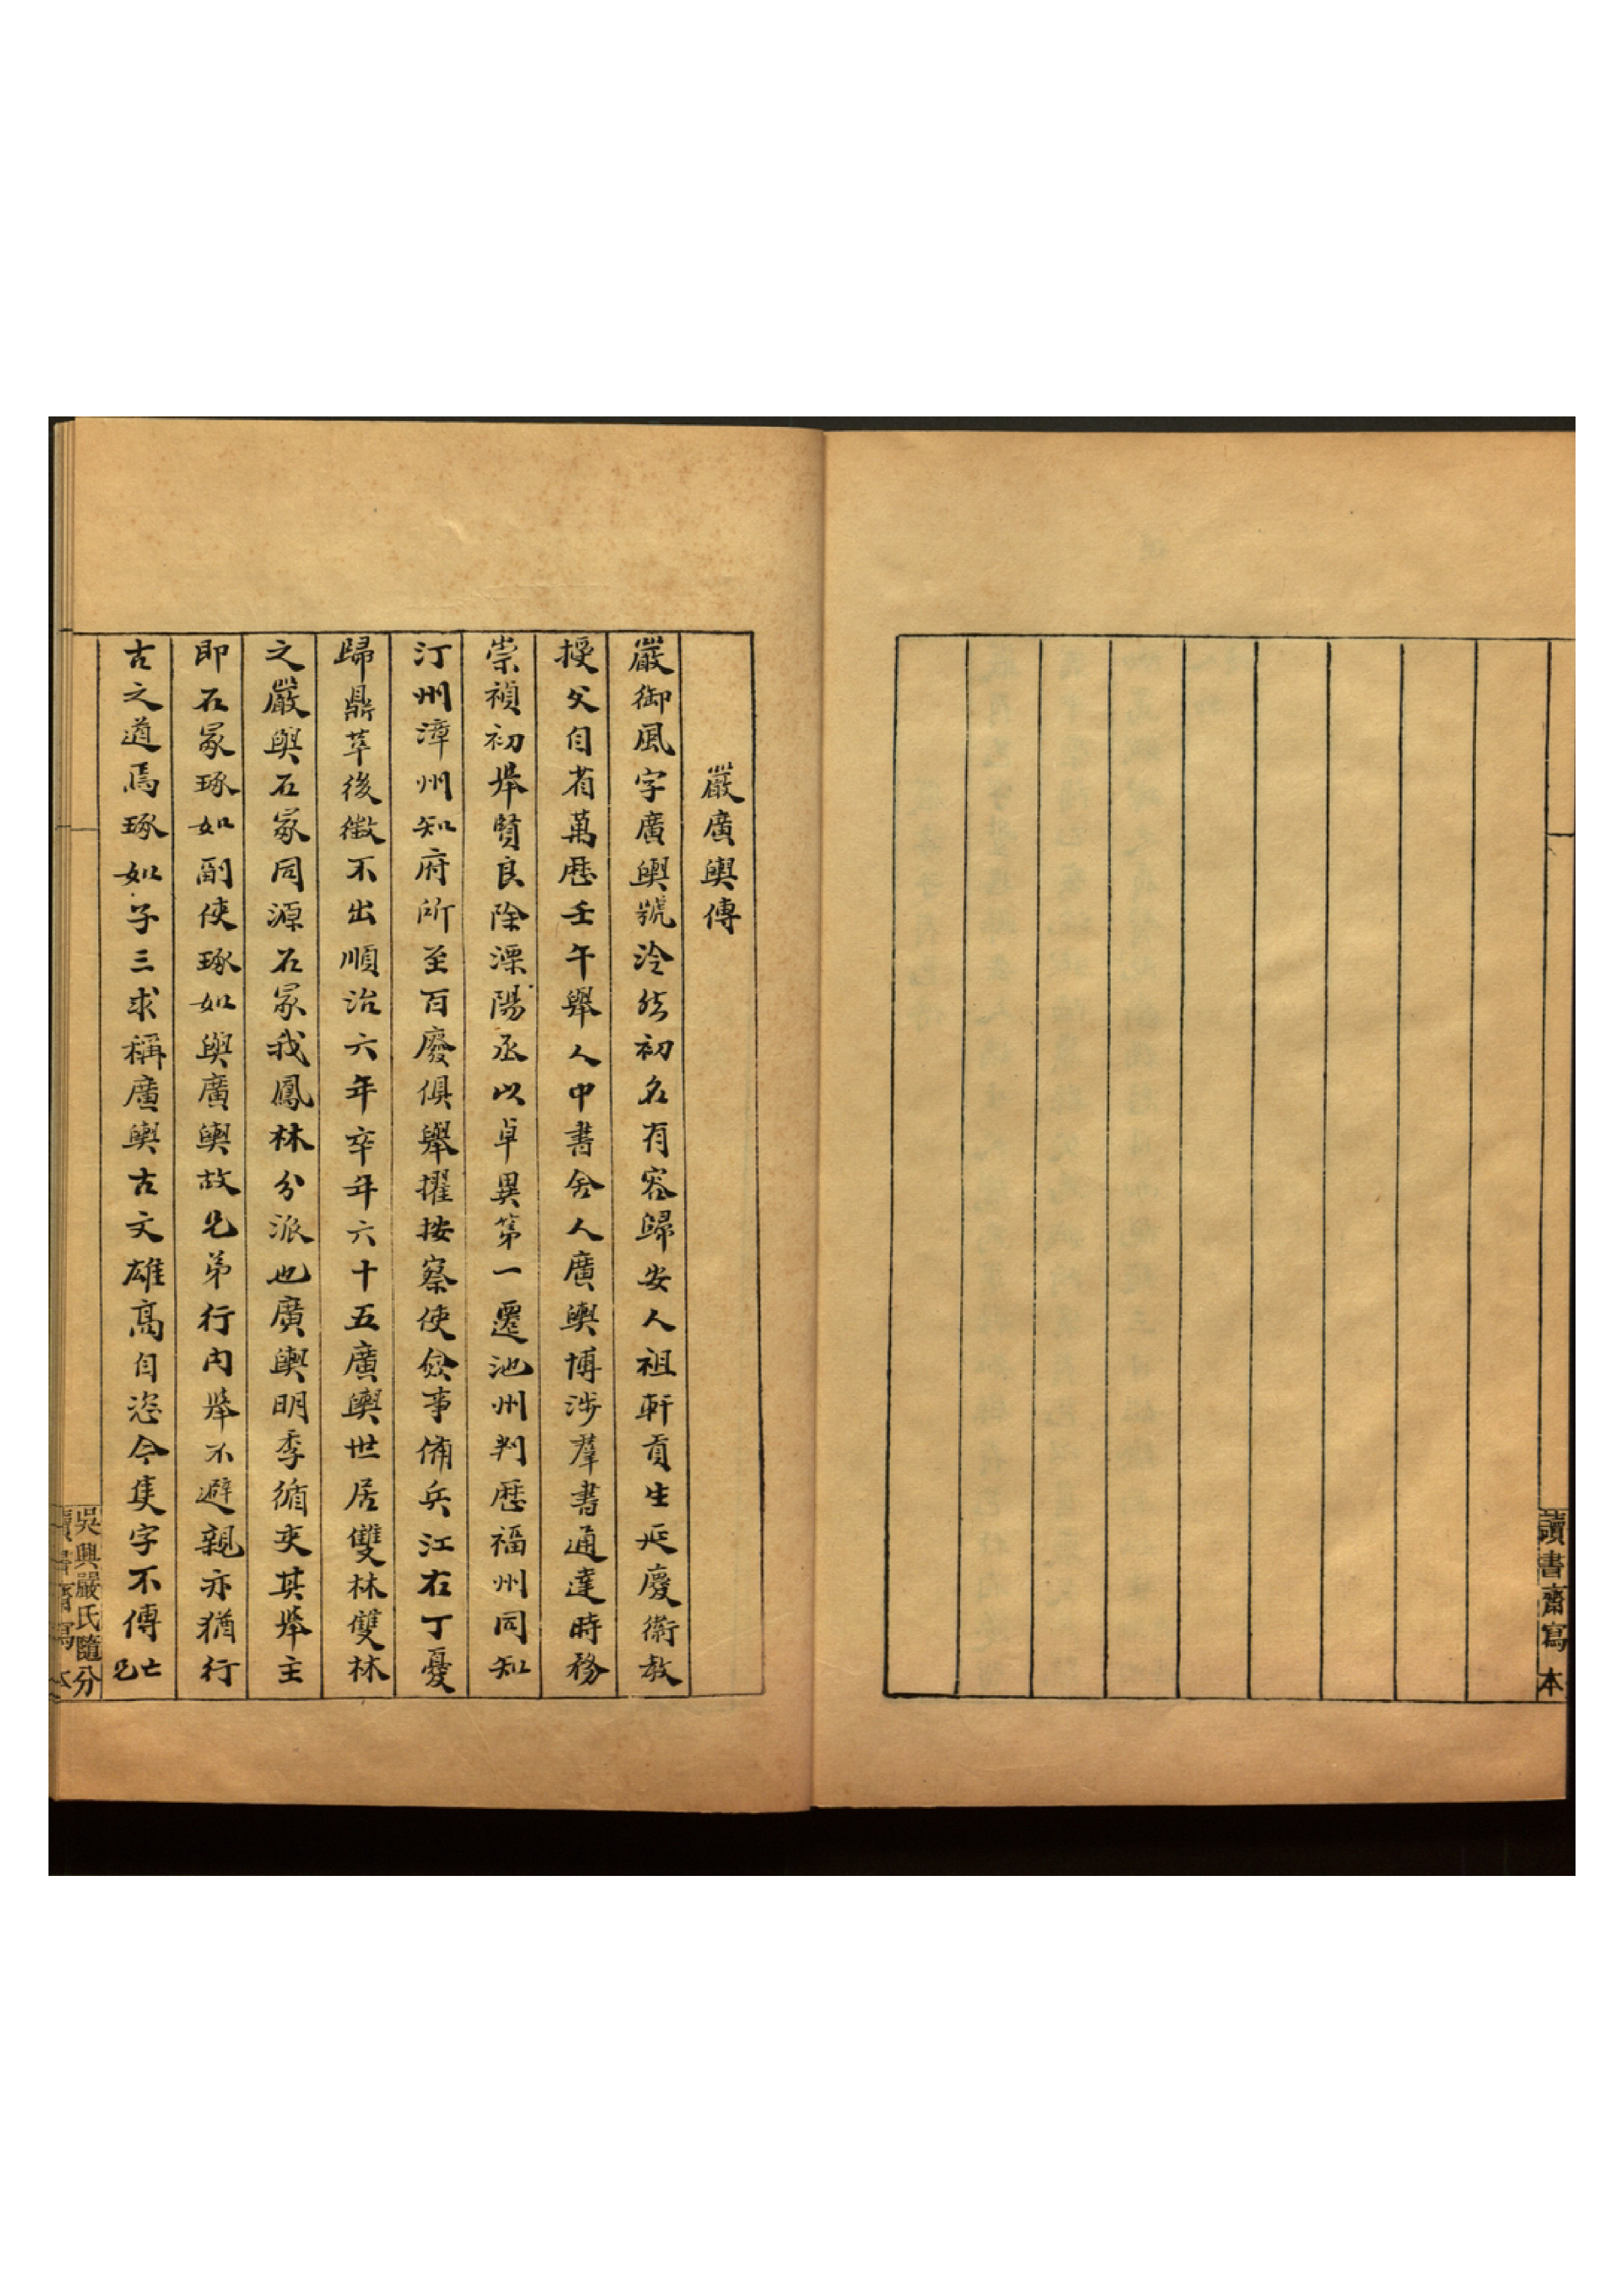 讀書齋寫本
嚴廣輿傳
嚴御風字廣輿號泠然初名有容歸安人祖軒貢生延慶衛教
授父自省萬歷壬午舉人中書舍人廣輿博涉羣書通達時務
崇禎初舉賢良除溧陽丞以卓異第一遷池州判歷福州同知
汀州漳州知府所至百廢俱舉擢按察使僉事備兵江右丁憂
歸鼎革後徵不出順治六年卒年六十五廣輿世居雙林雙林
之嚴與石冢同源石冢我鳳林分派也廣輿明季循吏其舉主
即石冢琢如副使琢如與廣輿故兄弟行內舉不避親亦猶行
古之道焉琢如子三求稱廣輿古文雄高自恣今隻字不傳亡兄
吳興嚴氏隨分
讀書齋寫本